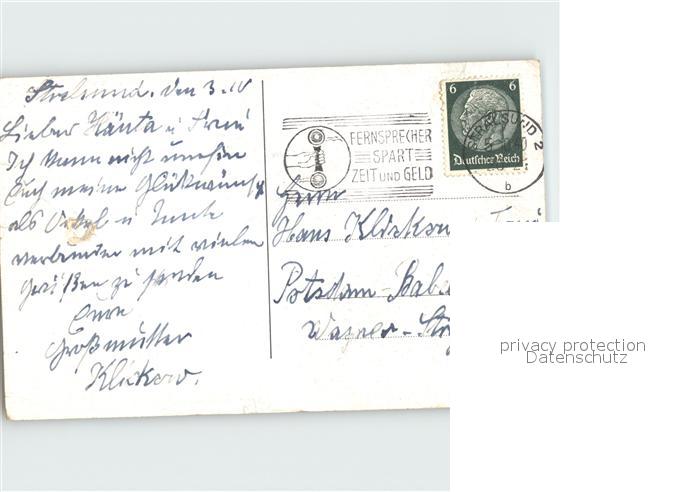 Stralsund, den 3.IV
Lieber Hänta u Frau
Ich kann nicht umhin
Euch meine Glückwünsche
als Onkel u Tante
verbunden mit vielen
Grüßen zu senden
Eure
Großmutter
Klickow.
FERNSPRECHER
SPART
ZEIT UND GELD
6 6
Deutsches Reich
STRALSUND 2
b
Herrn
Hans Klickow u
Potsdam-Babe
Wagner-Str
privacy protection
Datenschutz